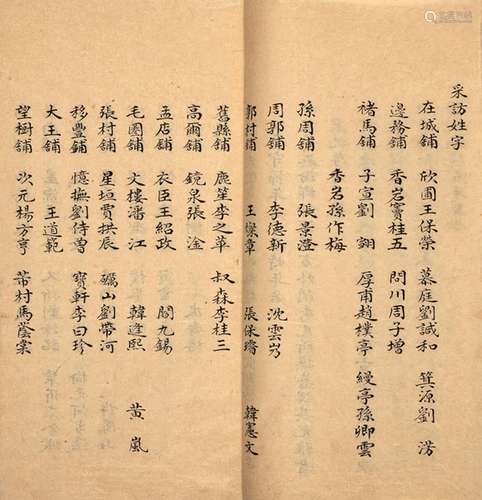 采訪姓字
在城鋪 欣圃王保榮 慕庭劉誠和 箕源劉澇
邊務鋪 香岩竇桂五 問川周子增
褚馬鋪 子宣劉翊 厚甫趙樸亭 縵亭孫卿雲
香岩孫作梅
孫周鋪 張景澄
周郭鋪 李德新 沈雲
郭村鋪 王 章 張保 韓憲文
舊縣鋪 鹿笙李之華 叔森李桂三
高爾鋪 鏡泉張淦
孟店鋪 衣臣王紹政 閻九錫
毛園鋪 文樓潘江 韓逢熙 黃嵐
張村鋪 星垣賈拱辰 礪山劉帶河
移豐鋪 憶撫劉侍曾 寶軒李曰珍
大王鋪 王道範
望樹鋪 次元楊方亨 芾村馬蔭棠